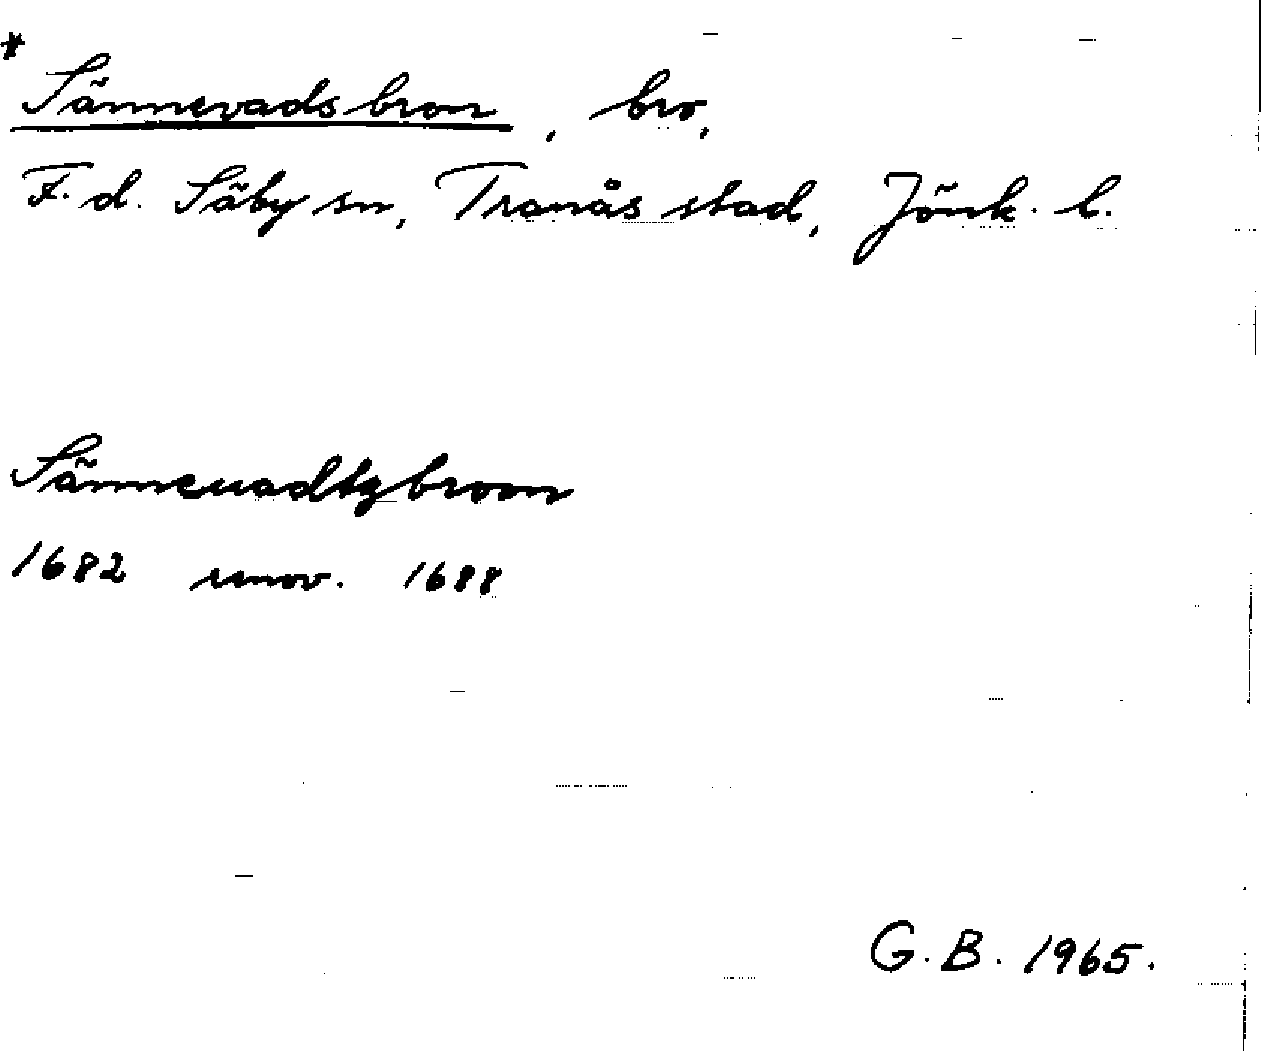 * Sännevadsbron, bro,
F. d. Säby sn, Tranås stad, Jönk. l.
Sänneuadtzbroon
1682 renov. 1688
G. B. 1965.